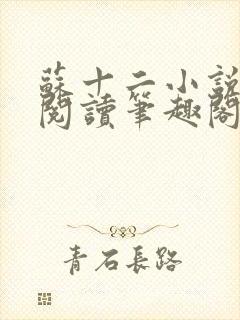 蘇十二小說
閱讀筆趣閣
青石長路